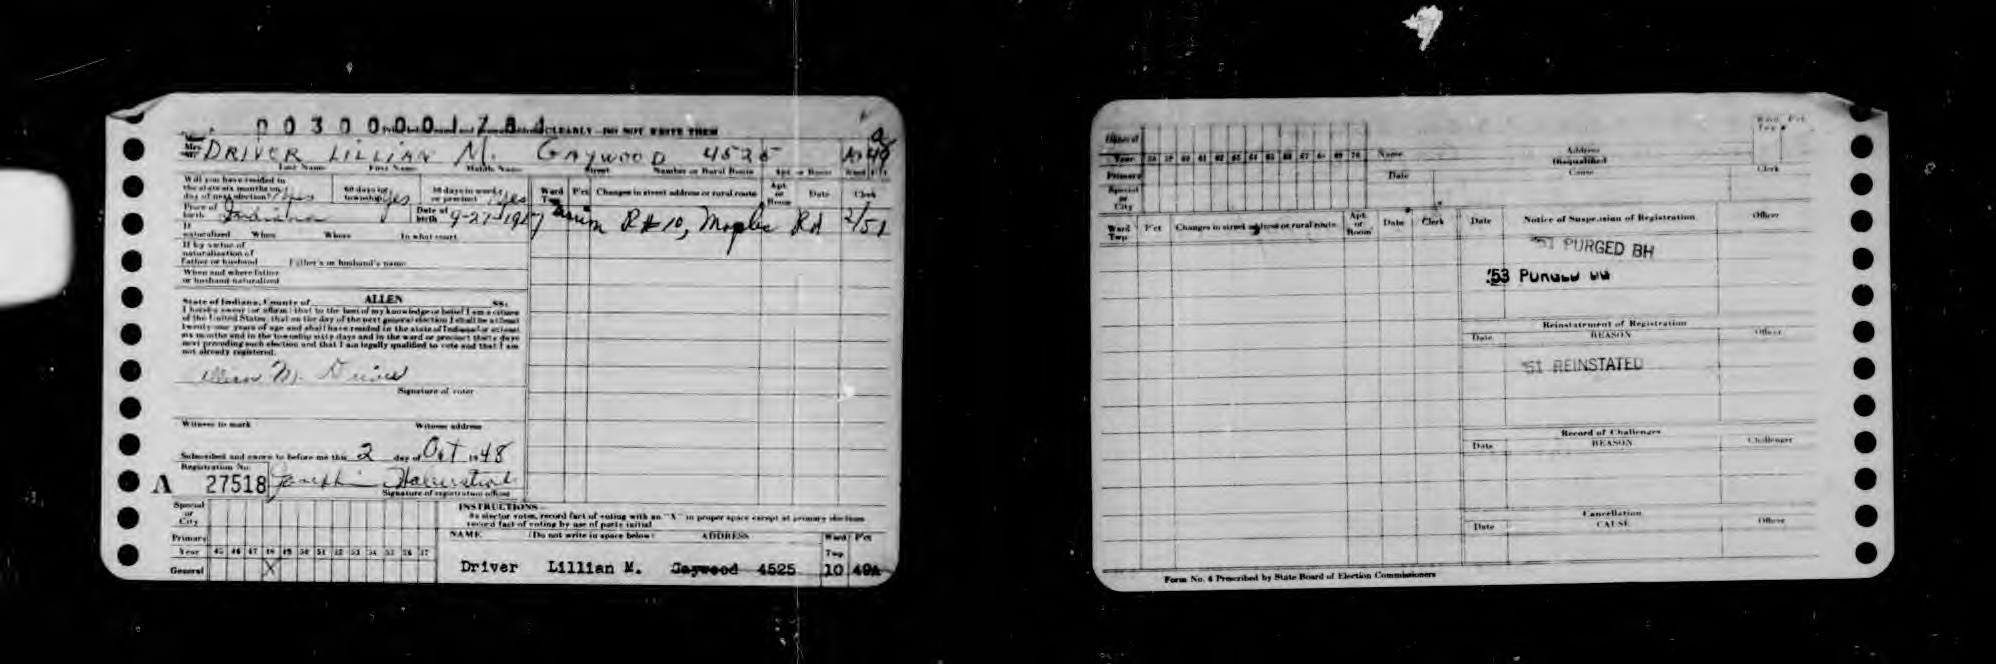 0 0 3 0 0 0 0 1 7 CLEARLY - DO NOT WRITE THEM
DRIVER LILLIAN M. GAYWOOD 4525 49
Last Name First Name Middle Name Street Number or Rural Route Apt. or Room
Will you have resided in the state six months on day of next election? Yes
60 days in township? Yes
30 days in ward or precinct Yes
Place of birth Indiana Date of birth 9-27-1917
If naturalized When Where In what court
If by virtue of naturalization of Father or husband Father's or husband's name
When and where father or husband naturalized
Ward Twp. P'ct Changes in street address or rural route Apt. or Room Date Clerk
R#10, Maples Rd 2/51
State of Indiana, County of ALLEN ss:
I hereby swear (or affirm) that to the best of my knowledge or belief I am a citizen
of the United States, that on the day of the next general election I shall be at least
twenty-one years of age and shall have resided in the state of Indiana for at least
six months and in the township sixty days and in the ward or precinct thirty days
next preceding such election and that I am legally qualified to vote and that I am
not already registered.
Lillian M. Driver
Signature of voter
Witness to mark Witness address
Subscribed and sworn to before me this 2 day of Oct 1948
Registration No.
A 27518
Signature of registration officer
Special or City
Primary
Year 45 46 47 48 49 50 51 52 53 54 55 56 57
General X
INSTRUCTIONS—
As elector votes, record fact of voting with an "X" in proper space except at primary elections
record fact of voting by use of party initial
NAME (Do not write in space below) ADDRESS Ward Twp P'ct
Driver Lillian M. Gaywood 4525 10 49A
General
Year 58 59 60 61 62 63 64 65 66 67 68 69 70
Primary
Special or City
Name Address
Disqualified
Date Cause Clerk
Ward Twp P'ct
Ward Twp. P'ct Changes in street address or rural route Apt. or Room Date Clerk
Date Notice of Suspension of Registration Officer
'51 PURGED BH
'53 PURGED BH
Reinstatement of Registration
Date REASON Officer
'51 REINSTATED
Record of Challenges
Date REASON Challenger
Cancellation
Date CAUSE Officer
Form No. 4 Prescribed by State Board of Election Commissioners